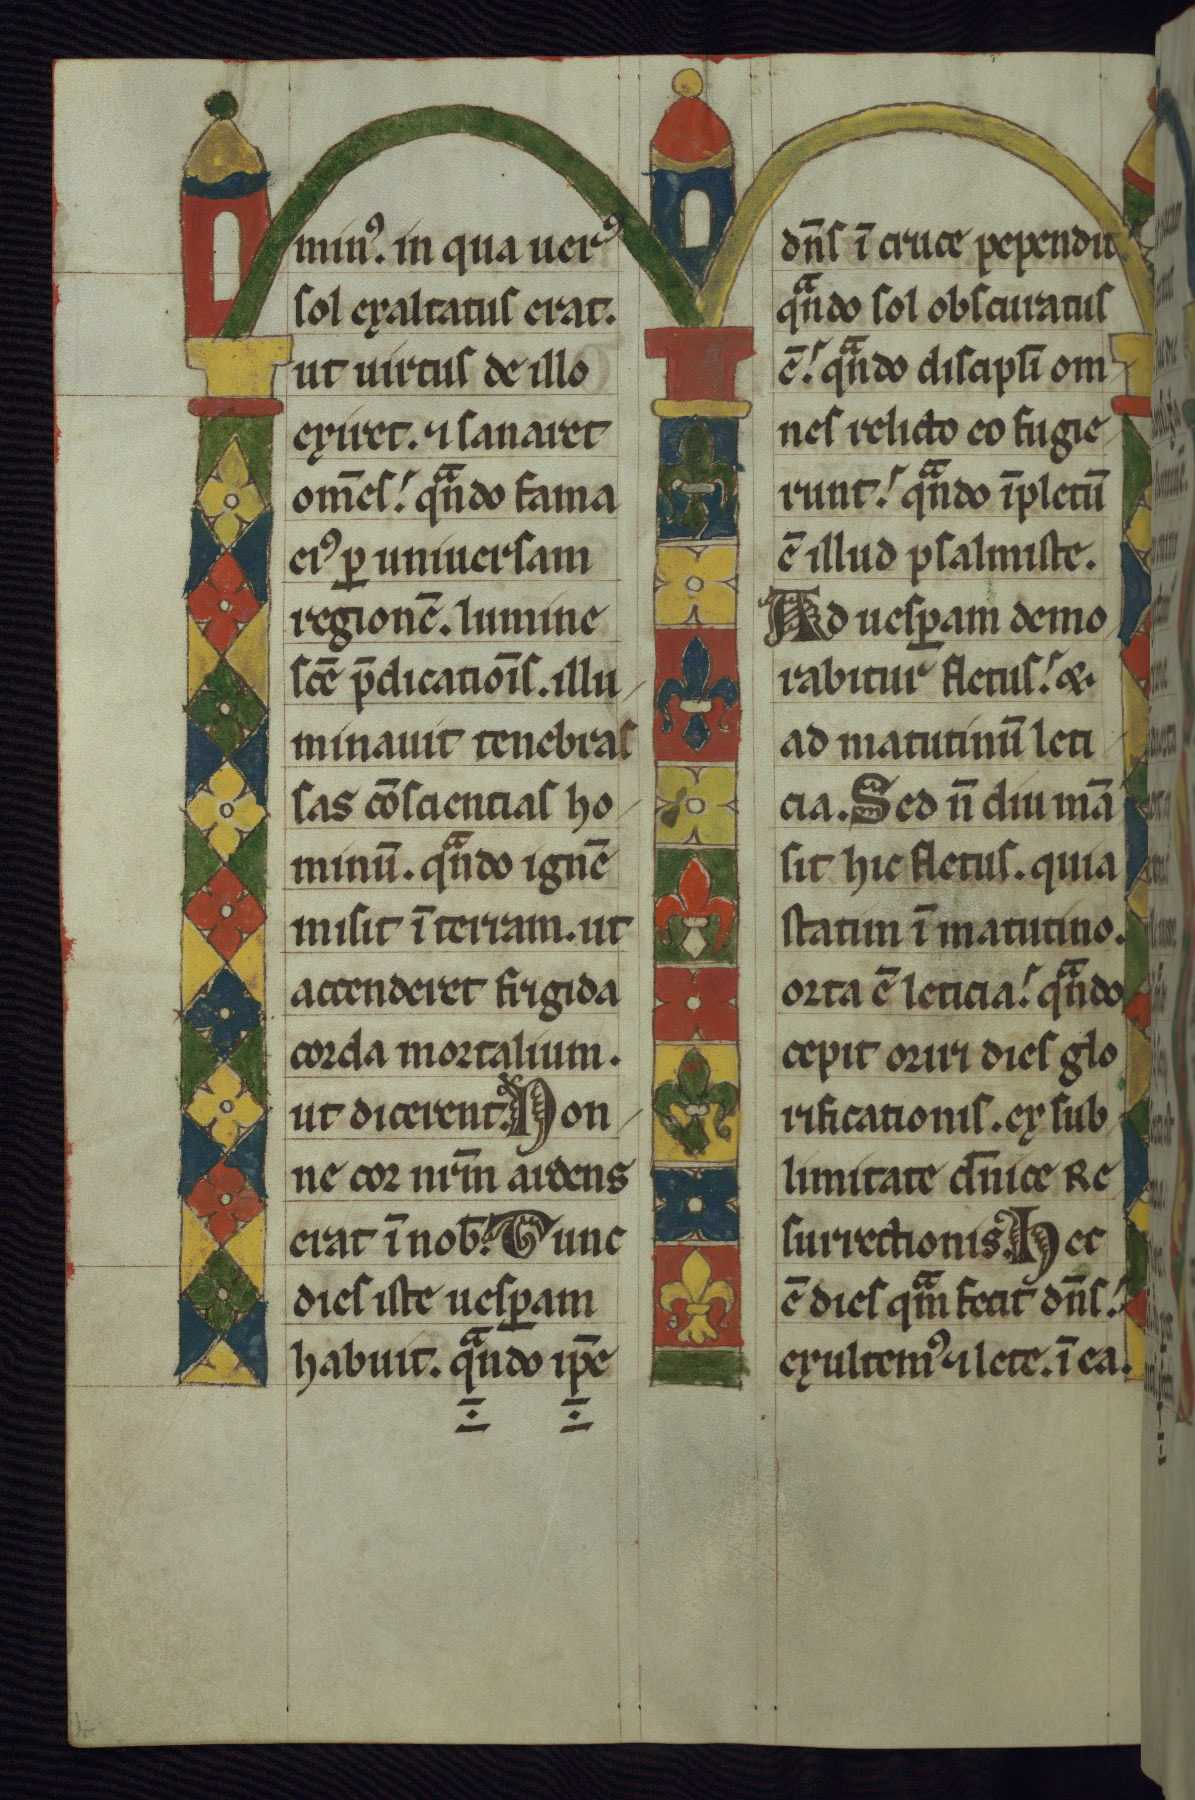 minꝰ. in qua uerꝰ
sol exaltatus erat.
ut uirtus de illo
exiret. ⁊ sanaret
om̄es! qn̄do fama
eiꝰ ꝑ uniuersam
regionē. lumine
scē p̄dicatiōis. illu
minauit tenebras
sas cōsciencias ho
minū. qn̄do ignē
misit ī terram. ut
accenderet frigida
corda mortalium.
ut dicerent. Non
ne cor nrm̄ ardens
erat ī nob̄. Tunc
dies iste uesꝑam
habuit. qn̄do ip̄e
dn̄s ī cruce pependit
qn̄do sol obscuratus
ē! qn̄do discipl̄i om
nes relicto eo fugie
runt! qn̄do īpletū
ē illud psalmiste.
Ad uesꝑam demo
rabitur fletus! &
ad matutinū leti
cia. Sed n̄ diu mā
sit hic fletus. quia
statim ī matutino.
orta ē leticia! qn̄do
cepit oriri dies glo
rificationis. ex sub
limitate dn̄ice Re
surrectionis. Hec
ē dies qm̄ fecit dn̄s!
exultemꝰ ⁊ lete. ī ea.